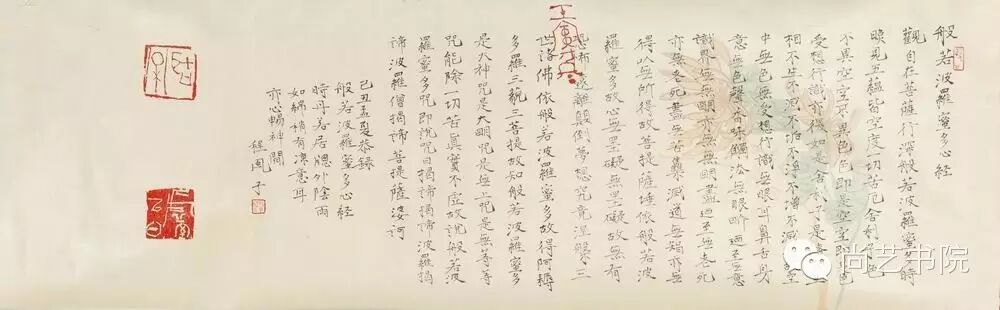 般若波羅蜜多心經
觀自在菩薩行深般若波羅蜜多時
照見五蘊皆空度切苦厄舍利子色
不異空空不異色色即是空空即是色
受想行識亦復如是舍利子是
相不生不滅不垢不淨不增不減
中無色無受想行識無眼耳鼻舌身
意無色聲香味觸法無眼界迺至無意
識界無無明亦無無明盡迺至無老死
亦無老死盡無苦集滅道無智亦無
得以無所得故菩提薩埵依般若波
羅蜜多故心無罣礙無罣礙故無有
恐怖遠離顛倒夢想究竟涅槃三
世諸佛依般若波羅蜜多故得阿耨
多羅三藐三菩提故知般若波羅蜜多
是大神咒是大明咒是無上咒是無等等
咒能除一切苦真實不虛故說般若波
羅蜜多咒即說咒曰揭諦揭諦波羅揭
諦波羅僧揭諦菩提薩婆訶
己丑孟夏恭錄
般若波羅蜜多心經
時丹若居牕外陰雨
如綿稍有凉意耳
亦心暢神閒
尚艺书院